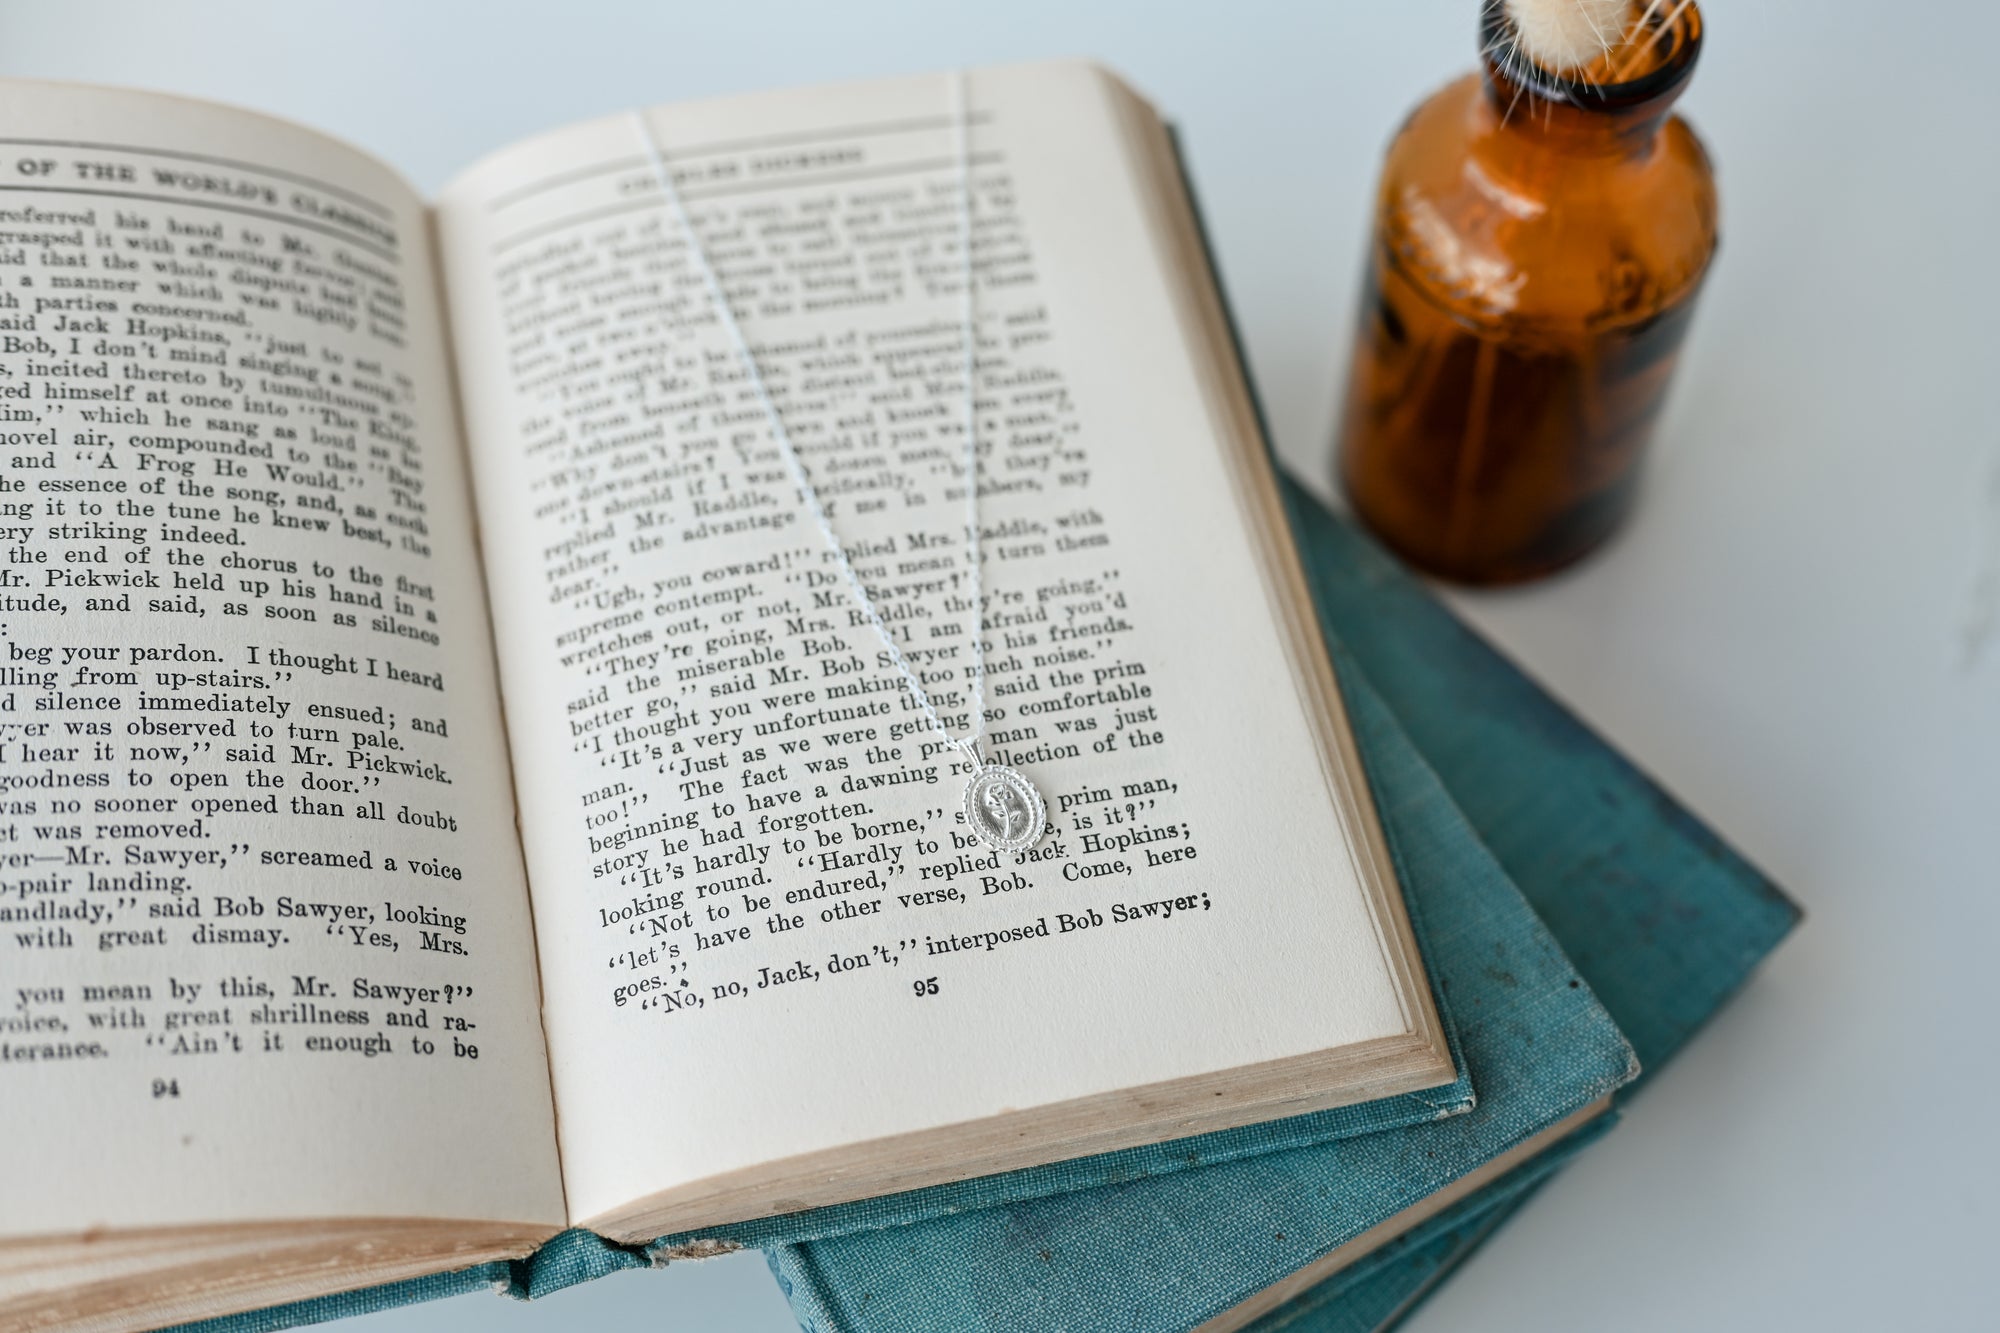 OF THE WORLD'S CLASSICS
roferred his hand to Mr.
grasped it with affecting
id that the whole dispute had been
a manner which was highly
th parties concerned.
aid Jack Hopkins, "just to set
Bob, I don't mind singing a song."
s, incited thereto by tumultuous ap-
ged himself at once into "The King,
im," which he sang as loud as he
novel air, compounded to the "Bay
and "A Frog He Would." The
he essence of the song, and, as each
ng it to the tune he knew best, the
ery striking indeed.
the end of the chorus to the first
Mr. Pickwick held up his hand in a
itude, and said, as soon as silence
:
beg your pardon. I thought I heard
lling from up-stairs."
d silence immediately ensued; and
wyer was observed to turn pale.
I hear it now," said Mr. Pickwick.
goodness to open the door."
was no sooner opened than all doubt
ct was removed.
yer—Mr. Sawyer," screamed a voice
o-pair landing.
andlady," said Bob Sawyer, looking
with great dismay. "Yes, Mrs.
you mean by this, Mr. Sawyer?"
voice, with great shrillness and ra-
terance. "Ain't it enough to be
94
CHARLES DICKENS
"You ought to be ashamed of yourselves," said
the voice of Mr. Raddle, which appeared to pro-
ceed from beneath some distant bed-clothes.
"Ashamed of themselves!" said Mrs. Raddle.
"Why don't you go down and knock 'em every
one down-stairs? You would if you was a man."
"I should if I was a dozen men, my dear,"
replied Mr. Raddle, pacifically, "but they've
rather the advantage of me in numbers, my
dear."
"Ugh, you coward!" replied Mrs. Raddle, with
supreme contempt. "Do you mean to turn them
wretches out, or not, Mr. Sawyer?"
"They're going, Mrs. Raddle, they're going."
said the miserable Bob. "I am afraid you'd
better go," said Mr. Bob Sawyer to his friends.
"I thought you were making too much noise."
"It's a very unfortunate thing," said the prim
man. "Just as we were getting so comfortable
too!" The fact was the prim man was just
beginning to have a dawning recollection of the
story he had forgotten.
"It's hardly to be borne," s prim man,
looking round. "Hardly to be e, is it?"
"Not to be endured," replied Jack Hopkins;
"let's have the other verse, Bob. Come, here
goes."
"No, no, Jack, don't," interposed Bob Sawyer;
95